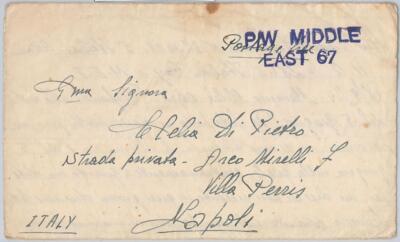 P/W MIDDLE
Postage free
EAST 67
Gma Signora
Clelia Di Pietro
Strada privata - Arco Mirelli 7
Villa Perris
Napoli
ITALY